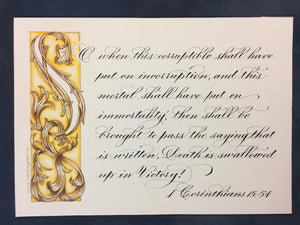 So when this corruptible shall have
put on incorruption, and this
mortal shall have put on
immortality, then shall be
brought to pass the saying that
is written, Death is swallowed
up in Victory!
1 Corinthians 15:54